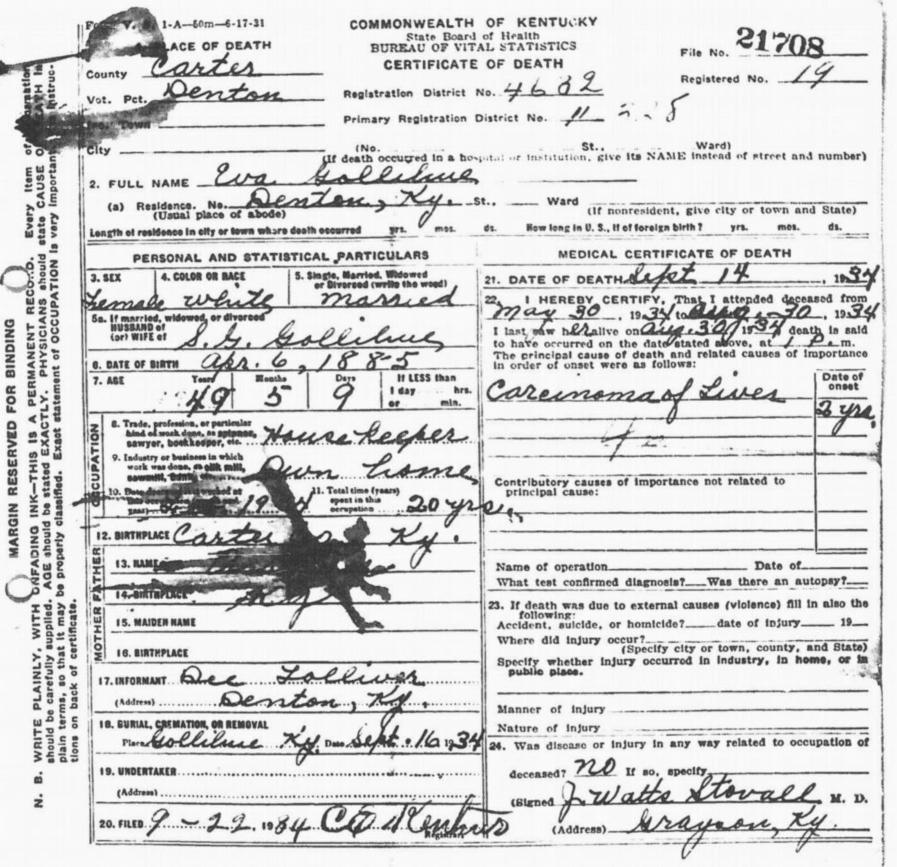 1-A—50m—6-17-31
COMMONWEALTH OF KENTUCKY
State Board of Health
BUREAU OF VITAL STATISTICS
CERTIFICATE OF DEATH
File No. 21708
Registered No. 19
PLACE OF DEATH
County Carter
Vot. Pct. Denton
Town
City
Registration District No. 4682
Primary Registration District No.
(No. St., Ward)
(If death occurred in a hospital or institution, give its NAME instead of street and number)
2. FULL NAME Eva Gollihue
(a) Residence. No. Denton, Ky. St., Ward
(Usual place of abode) (If nonresident, give city or town and State)
Length of residence in city or town where death occurred yrs. mos. ds. How long in U. S., if of foreign birth? yrs. mos. ds.
PERSONAL AND STATISTICAL PARTICULARS
3. SEX 4. COLOR OR RACE 5. Single, Married, Widowed
or Divorced (write the word)
Female White Married
5a. If married, widowed, or divorced
HUSBAND of
(or) WIFE of S. G. Gollihue
6. DATE OF BIRTH Apr. 6, 1885
7. AGE Years Months Days If LESS than
1 day hrs.
or min.
49 5 9
OCCUPATION
8. Trade, profession, or particular
kind of work done, as spinner,
sawyer, bookkeeper, etc. House Keeper
9. Industry or business in which
work was done, as silk mill,
sawmill, Own home
10. 11. Total time (years)
spent in this
occupation 20 yrs.
12. BIRTHPLACE Carter Ky.
FATHER
13. NAME
14. BIRTHPLACE Ky
MOTHER
15. MAIDEN NAME
16. BIRTHPLACE
17. INFORMANT Dee Tolliver
(Address) Denton, Ky.
18. BURIAL, CREMATION, OR REMOVAL
Place Gollihue Ky. Date Sept. 16 1934
19. UNDERTAKER
(Address)
20. FILED 9-22 1934
Registrar
MEDICAL CERTIFICATE OF DEATH
21. DATE OF DEATH Sept 14, 1934
22. I HEREBY CERTIFY, That I attended deceased from
May 30, 1934 to Aug. 30, 1934
I last saw her alive on Aug. 30, 1934 death is said
to have occurred on the date stated above, at 1 P. m.
The principal cause of death and related causes of importance
in order of onset were as follows:
Date of
onset
Carcinoma of Liver 2 yrs.
Contributory causes of importance not related to
principal cause:
Name of operation Date of
What test confirmed diagnosis? Was there an autopsy?
23. If death was due to external causes (violence) fill in also the
following:
Accident, suicide, or homicide? date of injury 19
Where did injury occur?
(Specify city or town, county, and State)
Specify whether injury occurred in industry, in home, or in
public place.
Manner of injury
Nature of injury
24. Was disease or injury in any way related to occupation of
deceased? NO If so, specify
(Signed J. Watts Stovall M. D.
(Address) Grayson, Ky.
MARGIN RESERVED FOR BINDING
N. B. WRITE PLAINLY, WITH UNFADING INK—THIS IS A PERMANENT RECORD. Every item of
should be carefully supplied. AGE should be stated EXACTLY. PHYSICIANS should state CAUSE OF DEATH in
plain terms, so that it may be properly classified. Exact statement of OCCUPATION is very important.
tions on back of certificate.